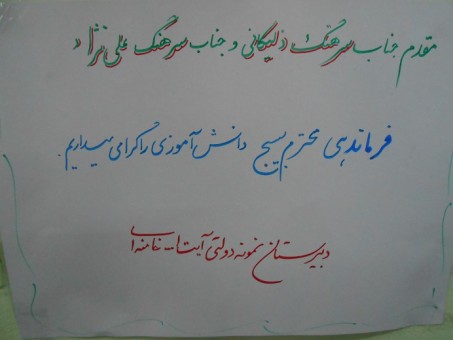 مقدم جناب سرهنگ زلیکانی و جناب سرهنگ علی نژاد
فرماندهی محترم بسیج دانش آموزی را گرامی میداریم.
دبیرستان نمونه دولتی آیت ا... خامنه ای